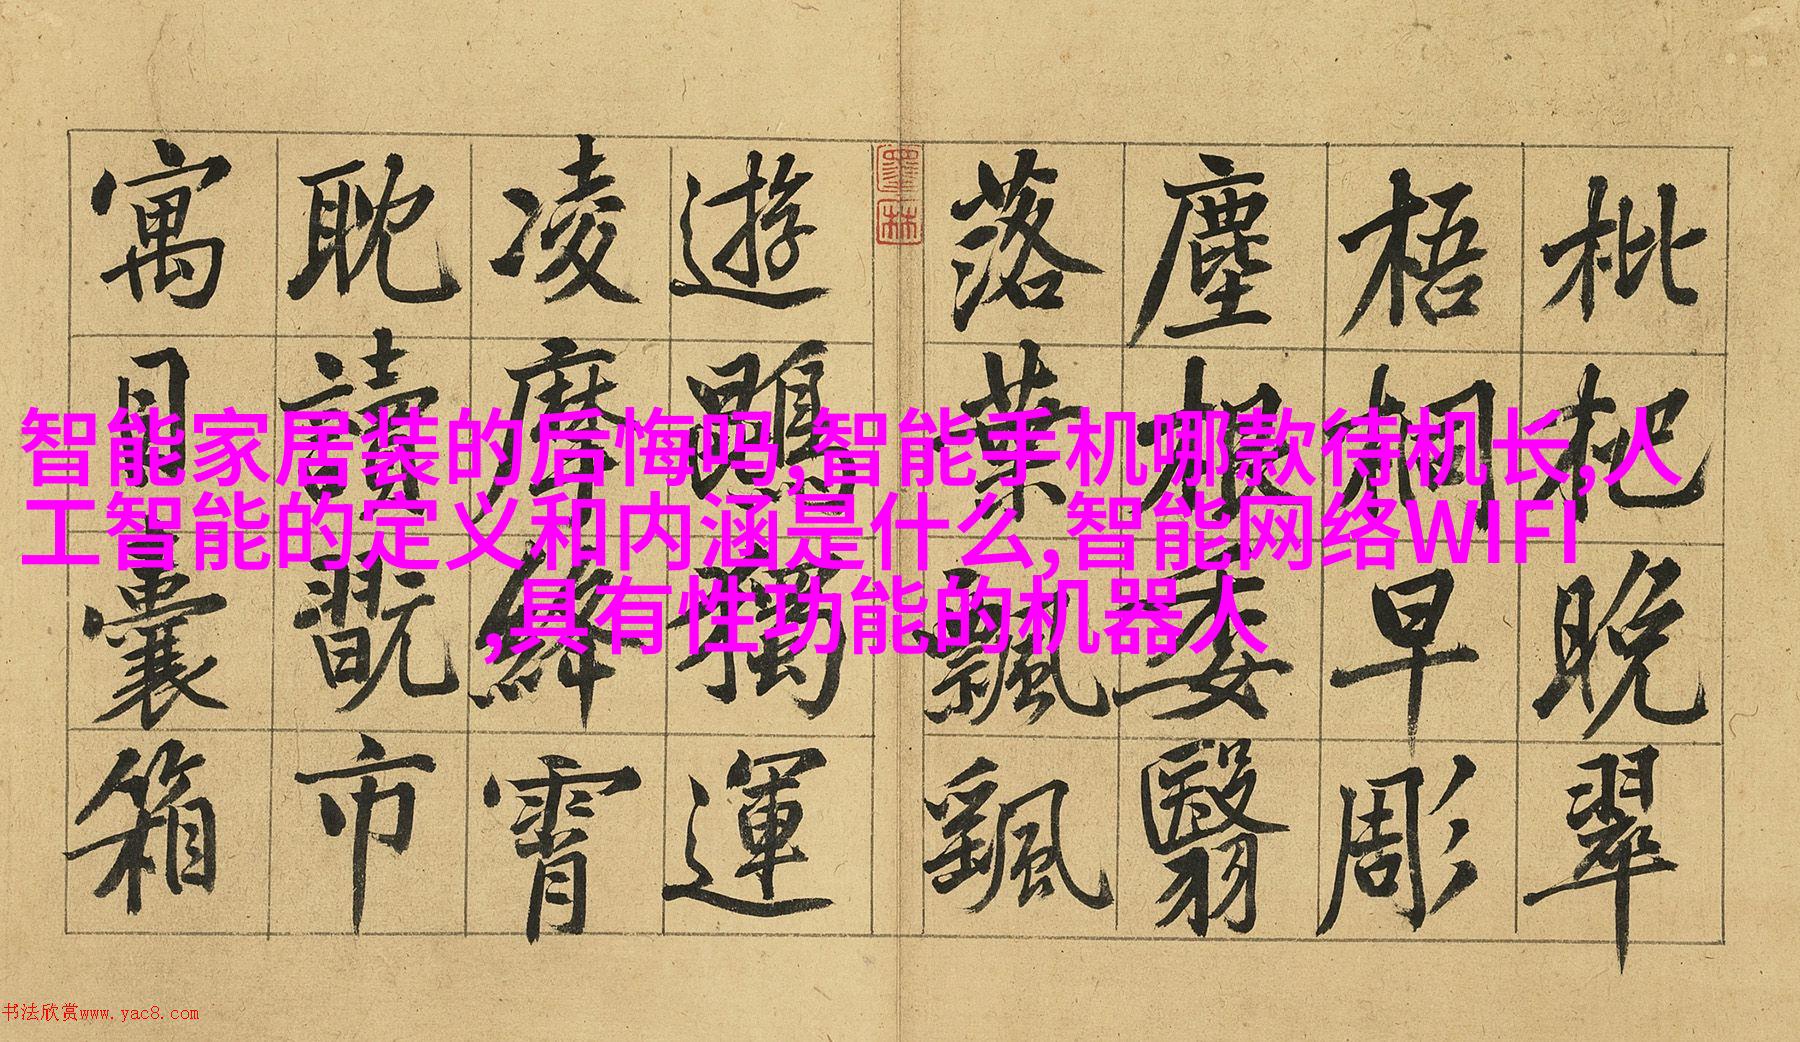 枇杷晚翠
梧桐早彫
塵根委翳
落葉飄颻
墨林
遊鵾獨運
凌摩絳霄
耽讀翫市
寓目囊箱
智能家居装的后悔吗,智能手机哪款待机长,人
工智能的定义和内涵是什么,智能网络WIFI
,具有性功能的机器人
书法欣赏www.yac8.com